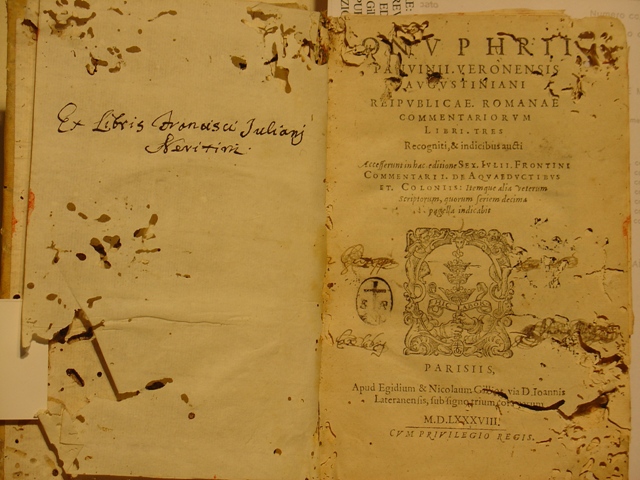 Ex Libris Francisci Juliani
ONVPHRII
PANVINII. VERONENSIS
AVGVSTINIANI
REIPVBLICAE. ROMANAE
COMMENTARIORVM
LIBRI. TRES
Recogniti, & indicibus aucti
Accesserunt in hac. editione SEX. IVLII. FRONTINI
COMMENTARII. DE AQVAEDVCTIBVS
ET. COLONIIS: Itemque alia veterum
Scriptorum, quorum seriem decima
pagella indicabit
S R
PARISIIS,
Apud Egidium & Nicolaum Gillios, via D. Ioannis
Lateranensis, sub signo trium coronarum
M.D.LXXXVIII.
CVM PRIVILEGIO REGIS.